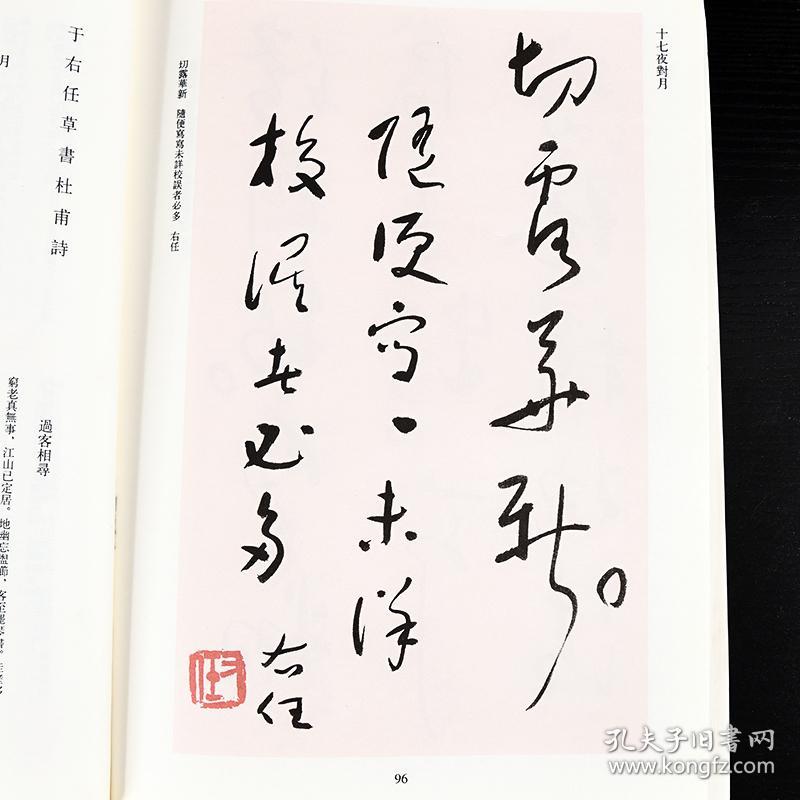 十七夜對月
切露華新。
隨便寫〻未詳
校誤者必多
右任
右任
切露華新 隨便寫寫未詳校誤者必多 右任
96
于右任草書杜甫詩
月
過客相尋
窮老真無事，江山已定居。地幽忘盥櫛，客至罷琴書。
孔夫子旧書网
www.kongfz.com